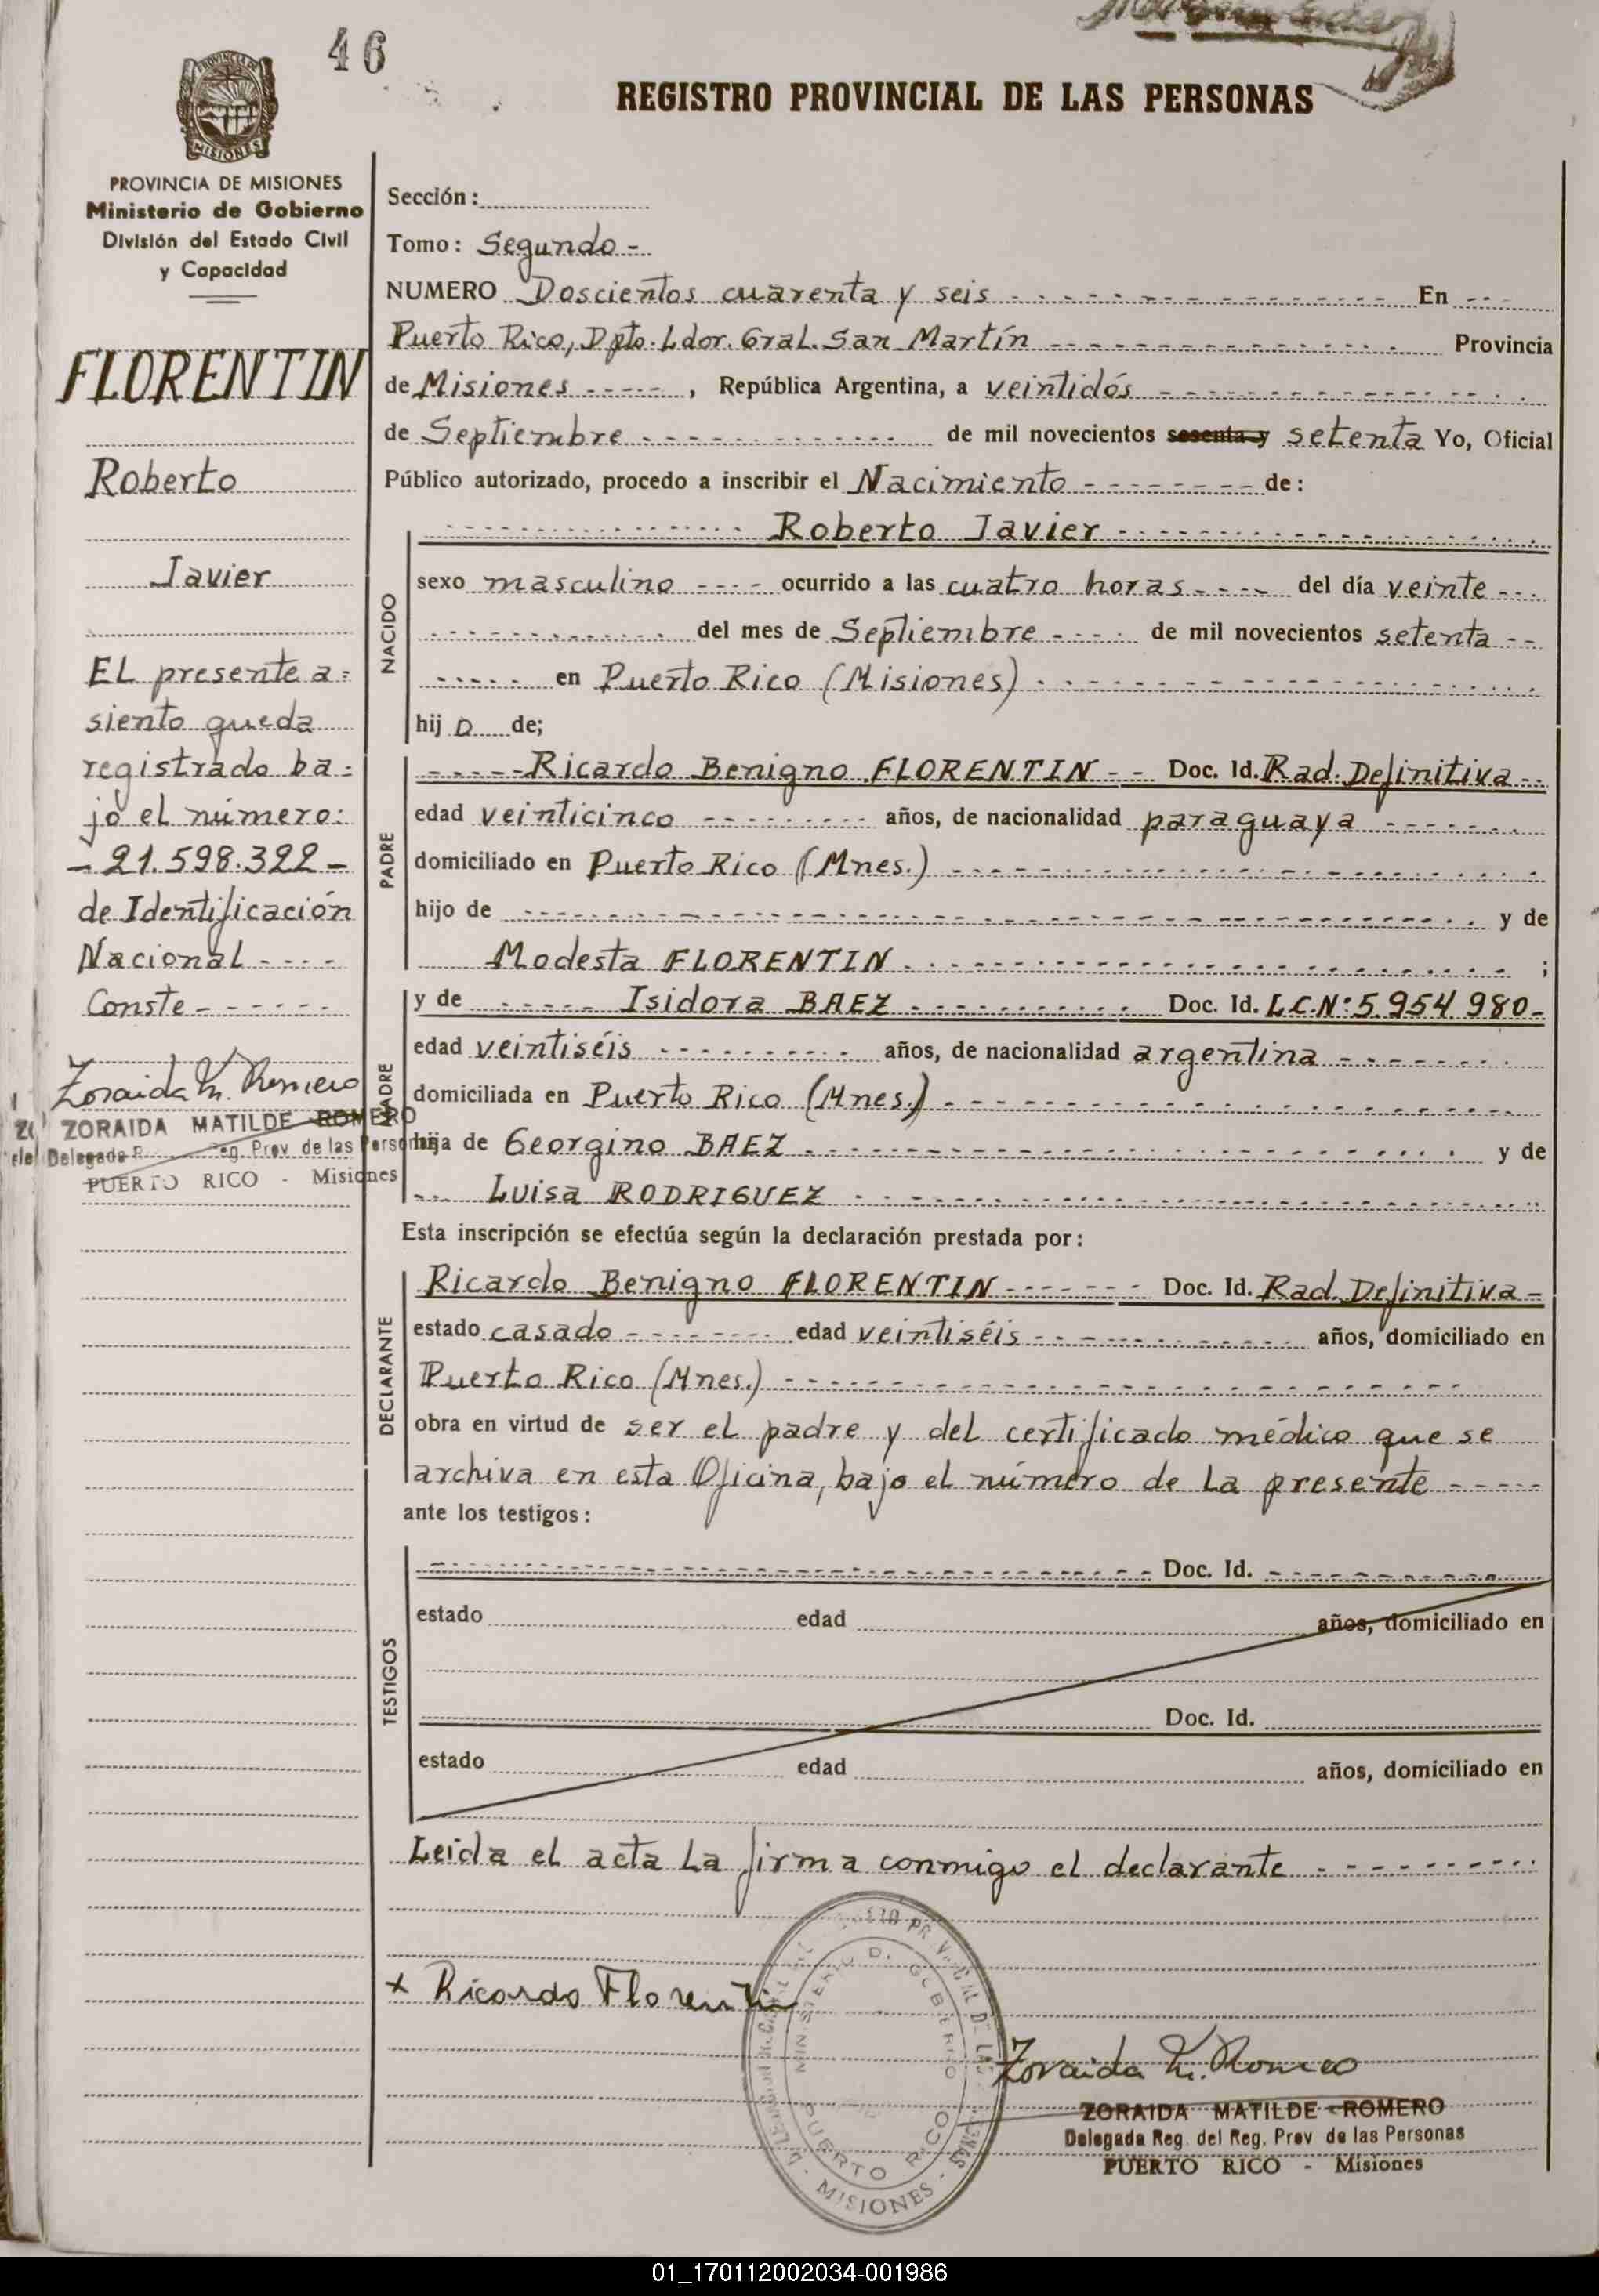 46
REGISTRO PROVINCIAL DE LAS PERSONAS
PROVINCIA DE MISIONES
MISIONES
PROVINCIA DE MISIONES
Ministerio de Gobierno
División del Estado Civil
y Capacidad
FLORENTIN
Roberto
Javier
EL presente a=
siento queda
registrado ba=
jo el número:
- 21.598.322 -
de Identificación
Nacional ----
Conste ------
Zoraida M. Romero
ZORAIDA MATILDE ROMERO
Delegada Reg. Prov de las Personas
PUERTO RICO - Misiones
Sección:
Tomo: Segundo -
NUMERO Doscientos cuarenta y seis En
Puerto Rico, Dpto. Ldor. Gral. San Martín Provincia
de Misiones, República Argentina, a veintidós
de Septiembre de mil novecientos sesenta y setenta Yo, Oficial
Público autorizado, procedo a inscribir el Nacimiento de:
NACIDO
Roberto Javier
sexo masculino ocurrido a las cuatro horas del día veinte
del mes de Septiembre de mil novecientos setenta
en Puerto Rico (Misiones)
hij o de;
PADRE
Ricardo Benigno FLORENTIN Doc. Id. Rad. Definitiva
edad veinticinco años, de nacionalidad paraguaya
domiciliado en Puerto Rico (Mnes.)
hijo de y de
Modesta FLORENTIN ;
MADRE
y de Isidora BAEZ Doc. Id. L.C.Nº: 5.954.980-
edad veintiséis años, de nacionalidad argentina
domiciliada en Puerto Rico (Mnes.)
hija de Georgino BAEZ y de
Luisa RODRIGUEZ
Esta inscripción se efectúa según la declaración prestada por:
DECLARANTE
Ricardo Benigno FLORENTIN Doc. Id. Rad. Definitiva -
estado casado edad veintiséis años, domiciliado en
Puerto Rico (Mnes.)
obra en virtud de ser el padre y del certificado médico que se
archiva en esta Oficina, bajo el número de la presente
ante los testigos:
TESTIGOS
Doc. Id.
estado edad años, domiciliado en
Doc. Id.
estado edad años, domiciliado en
Leida el acta la firma conmigo el declarante
x Ricardo Florentin
MINISTERIO D. GOBIERNO
PUERTO RICO
MISIONES
Zoraida M. Romero
ZORAIDA MATILDE ROMERO
Delegada Reg. del Reg. Prov de las Personas
PUERTO RICO - Misiones
01_170112002034-001986